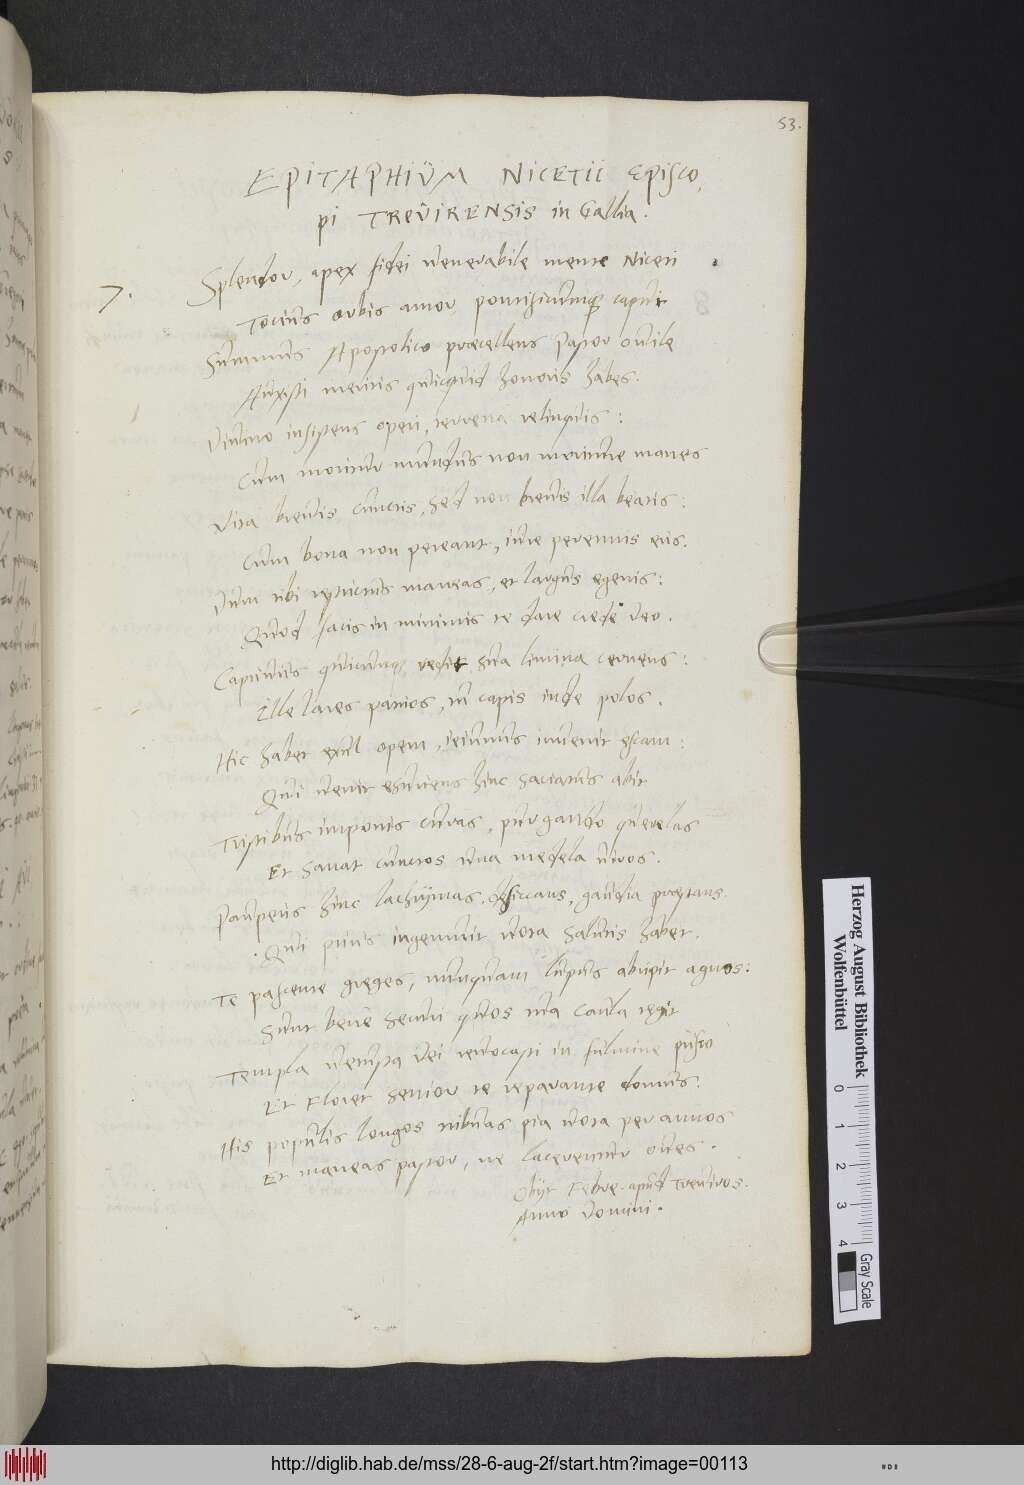 53.
EPITAPHIŬM NICETII Episco,
pi TREŬIRENSIS in Gallia.
7.
Splendor, apex fidei venerabile mente Niceti
Totius orbis amor, pontificumq3 caput
Summus Apostolico præcellens Pastor ovile
Auxisti meritis quicquid honoris habes.
Divino insistens operi, terrena relinquis:
Cum moritur mundus non moriture manes
Vita brevis cunctis, sed non brevis illa beatis:
Cum bona non pereant, iure perennis eris.
Dum tibi restrictus maneas, et largus egenis:
Quod facis in minimis te dare crede Deo.
Captivus quicunq3 redit sua limina cernens:
Ille lares patrios, tu capis inde polos.
Hic habet exul opem, ieiunus invenit escam:
Qui venit esuriens hinc saciatus abit
Tristibus imponis curas, purgando querelas
Et sanat cunctos una medela viros.
Pauperis hinc lachrijmas desiccans, gaudia præstans.
Qui prius ingemuit vota salutis habet.
Te pascente greges, nunquam lupus abripit agnos:
Sunt bene securi quos tua caula tegit
Templa vetusta Dei revocasti in culmine prisco
Et Floret senior te reparante domus:
His populis longos tribuas pia vota per annos
Et maneas pastor, ne lacerentur oves.
Obijt Febre. apud Treviros.
Anno Domini.
Herzog August Bibliothek
Wolfenbüttel
0 1 2 3 4
Gray Scale
http://diglib.hab.de/mss/28-6-aug-2f/start.htm?image=00113